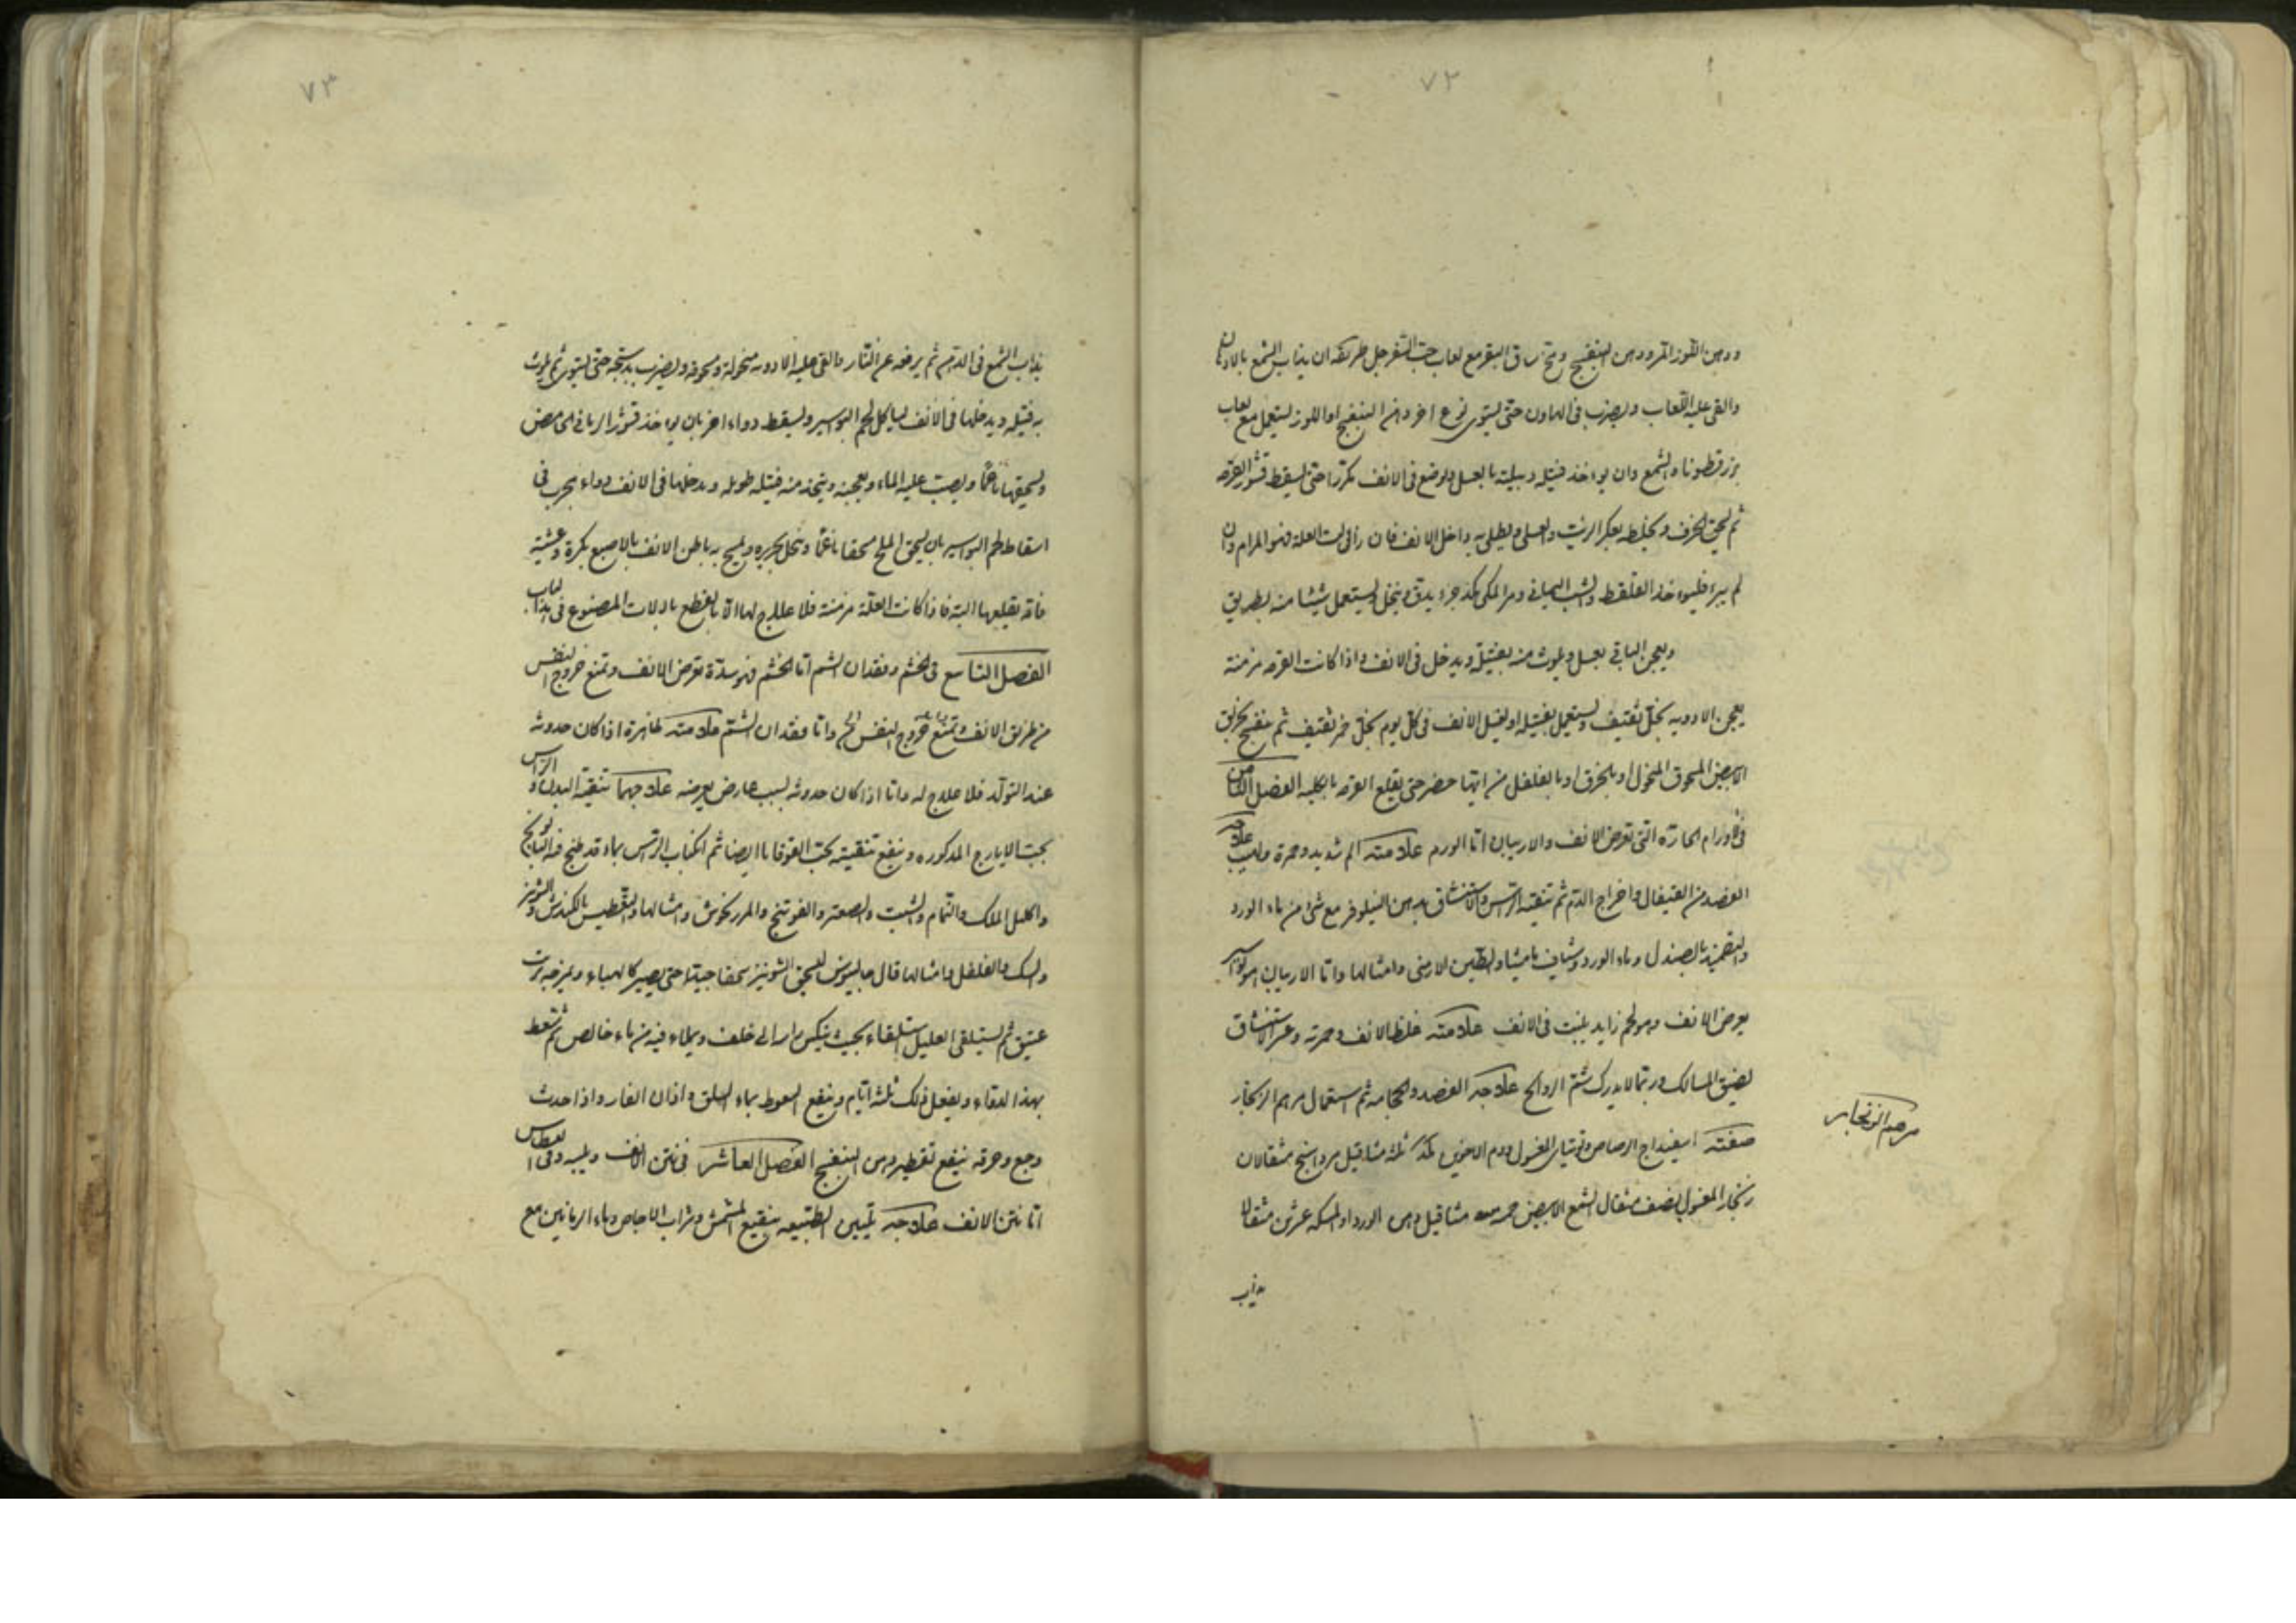 ٧٢
ودهن اللوز المر ودهن البنفسج ومخ ساق البقر مع لعاب حب السفرجل طريقه ان يذاب الشمع بالادهان
والقى عليه اللعاب ويضرب فى الهاون حتى يستوى نوع اخر دهن البنفسج او اللوز يستعمل مع لعاب
بزر قطونا والشمع وان يوءخذ فتيله ويبلته بالعسل ويوضع فى الانف مكررا حتى يسقط قشور القرحه
ثم يسحق الخزف ويخلطه بعكر الزيت والعسل ويطلى به داخل الانف فان زالت العلة فهو المرام وان
لم يبرء فليوءخذ القلقطار والشب اليمانى ومر المكى كذ جزء يدق وينخل ويستعمل شيئا منه بطريق
ويعجن الباقى بعسل ويلوث منه بفتيلة ويدخل فى الانف واذا كانت القرحه مزمنة
يعجن الادويه بخل ثقيف ويستعمل بفتيله او يغسل الانف فى كل يوم بخل خمر ثقيف ثم ينفخ بخربق
الابيض المسحوق المنخول او بالحرف او بالفلفل من ايتها حضر حتى يقلع القرحه بالكليه الفصل الثامن
فى الاورام الحارة التى تعرض الانف والاربيان اما الورم علامته الم شديد وحمرة ولهيب علاجه
الفصد من القيفال واخراج الدم ثم تنقيه الراس والاستنشاق بدهن النيلوفر مع شئ من ماء الورد
والتضميد بالصندل وماء الورد وشياف مامیثا والطين الارمنى وامثالها واما الاربيان هو بواسير
يعرض الانف وهو لحم زايد ينبت فى الانف علامته غلظ الانف وحمرته وعسر الاستنشاق
لضيق المسالك وربما لا يدرك شم الروائح علاجه الفصد والحجامه ثم استعمال مرهم الزنجار
مرهم الزنجار
صفته اسفيداج الرصاص وتوتياى المغسول ودم الاخوين كذ ثلثه مثاقيل مرداسنج مثقالان
زنجار المغسول نصف مثقال الشمع الابيض خمسه مثاقيل دهن الورد او المسكه عشرين مثقالا
يذاب
٧٣
يذاب الشمع فى الدهن ثم يرفعه عن النار والقى عليه الادويه منخولة ومسحوقه ويضرب بدستجه حتى يستوى ثم يلوث
به فتيله ويدخلها فى الانف ليأكل لحم البواسير ويسقط دواء اخر بان يوءخذ قشور الرمان الحامض
ويسحقها ناعما ويصب عليه الماء ويعجنه ويتخذ منه فتيله طويله ويدخلها فى الانف دواء مجرب فى
اسقاط لحم البواسير بان يسحق الملح سحقا ناعما وينخل بحريره ويمسح به باطن الانف بالاصبع بكرة وعشية
فانه يقلعها البته فاذا كانت العلة مزمنة فلا علاج لها الا بالقطع بالالات المصنوع فى هذا الباب
الفصل التاسع فى الخشم وفقدان الشم اما الخشم فهو سدة تعرض الانف وتمنع خروج النفس
من طريق الانف وتمنع خروج النفس واما فقدان الشم علامته ظاهرة اذا كان حدوثه
عند التولد فلا علاج له واما اذا كان حدوثه لسبب عارض يعرضه علاجهما تنقية البدن والراس
بحب الايارج المذكوره وينفع تنقيته بحب القوقايا ايضا ثم انكباب الراس بماء قد طبخ فيه البابونج
واكليل الملك والنمام والشبت والصعتر والفوتنج والمرزنجوش وامثالها والتعطيس بالكندش والشونيز
والمسك والفلفل وامثالها قال جالينوس يسحق الشونيز سحقا جيدا حتى يصير كالهباء ويمزجه بزيت
عتيق ثم يستلقى العليل استلقاء بحيث ينكس راسه الى خلف ويملاء فيه من ماء خالص ثم يسعط
بهذا الدواء ويفعل ذلك ثلثه ايام وينفع السعوط بماء السلق واذان الفار واذا حدث
وجع وحرقه ينفع تقطير دهن البنفسج الفصل العاشر فى نتن الانف ويبسه وفى العطاس
اما نتن الانف علاجه تليين الطبيعه بنقيع المشمش وشراب الاجاص وماء الرمانين مع